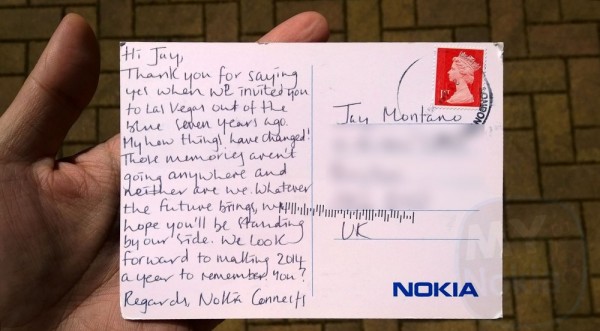 Hi Jay,
Thank you for saying
yes when we invited you
to Las Vegas out of the
blue seven years ago.
My how things have changed!
Those memories aren't
going anywhere and
neither are we. Whatever
the future brings, we
hope you'll be standing
by our side. We look
forward to making 2014
a year to remember. You?
Regards, Nokia Connects
1ST
LONDON
Jay Montano
UK
NOKIA
MY